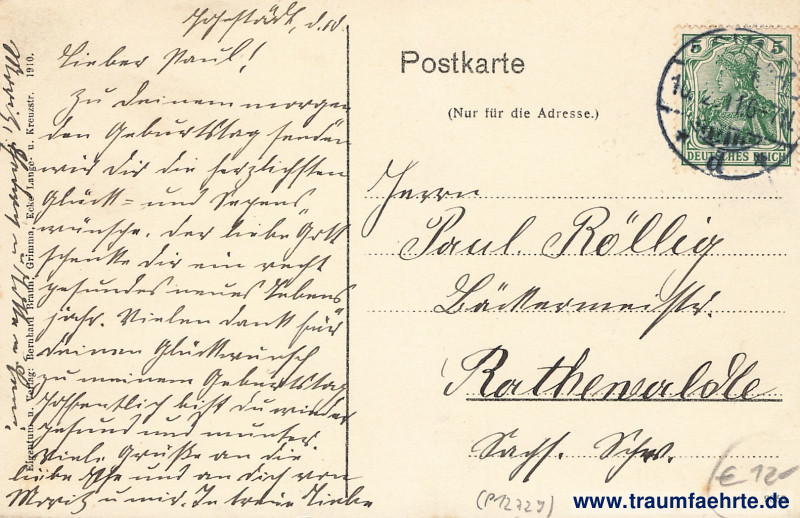 Hohstädt, d. 10.
Lieber Paul!
Zu deinem morgen
den Geburtstag senden
wir dir die herzlichsten
Glück- und Segens
wünsche. Der liebe Gott
schenke dir ein recht
gesundes neues Lebens
jahr. Vielen Dank für
deinen Glückwunsch
zu meinem Geburtstag
Hoffentlich bist du wieder
gesund und munter.
Viele Grüße an die
liebe und an dich von
Moritz u. mir. In treuer Liebe
Eigentum u. Verlag: Bernhard Braun, Grimma, Ecke Lange- u. Kreuzstr. 1910.
Postkarte
(Nur für die Adresse.)
5 5
DEUTSCHES REICH
Herrn
Paul Röllig
Bäckermeistr.
Rathewalde
Sächs. Schw.
(P12729)
€ 12-
www.traumfaehrte.de